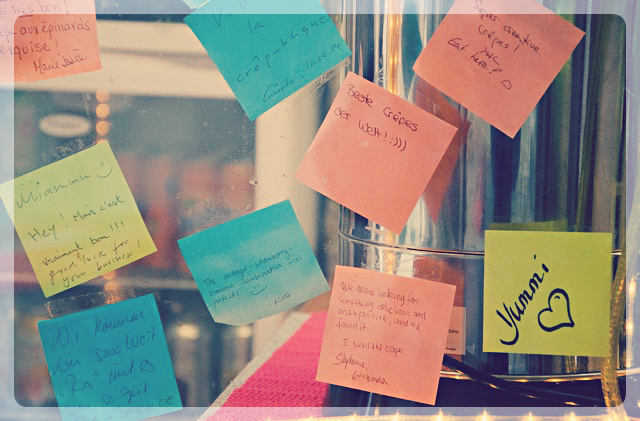 très bon!
aux épinards
exquise!
la
crêpublique
Super creative
crêpes!
Eat here!
Beste crêpes
der Welt!:)))
Miammm
Hey! Mais c'est
vraiment bon!!!
good luck for
your business!
The mango-strawberry-
banana combination was
perfect!
We were looking for
something delicious and
and we
found it
I liked the crepe
Stephanie,
Guatemala
Yummi
Wir kommen
von sooo weit
Paris und es
so gut